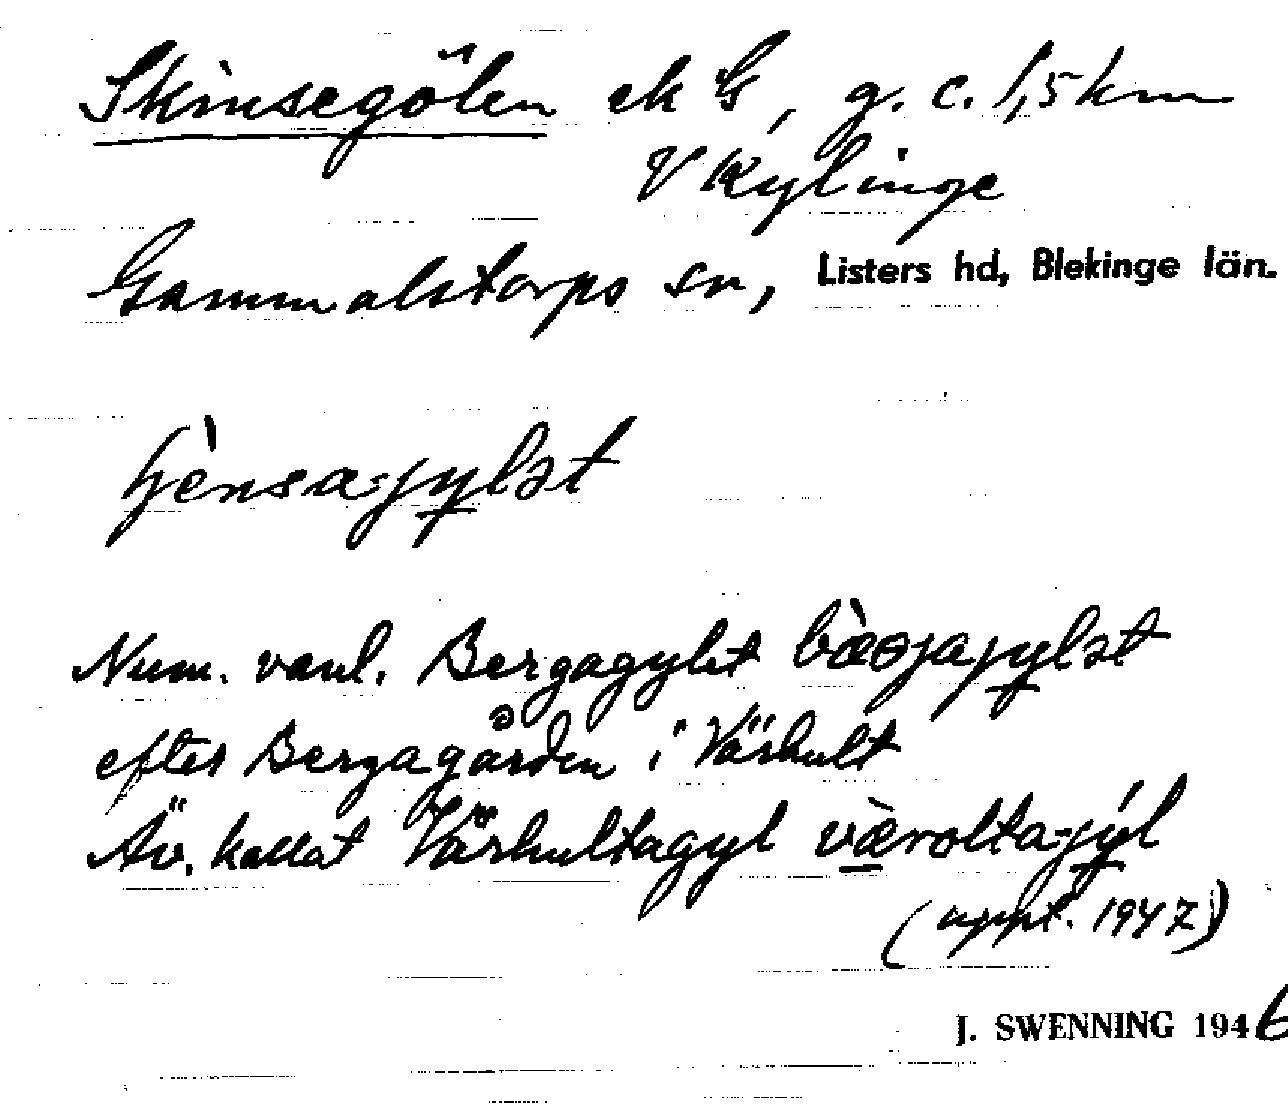 Skinsegölen ek G, g. c. 1,5 km
V Kylinge
Gammalstorps sn, Listers hd, Blekinge län.
Num. vanl. Bergagylet
efter Bergagården i Värhult
Äv. kallat Värhultagyl
(uppt. 1947)
J. SWENNING 1946